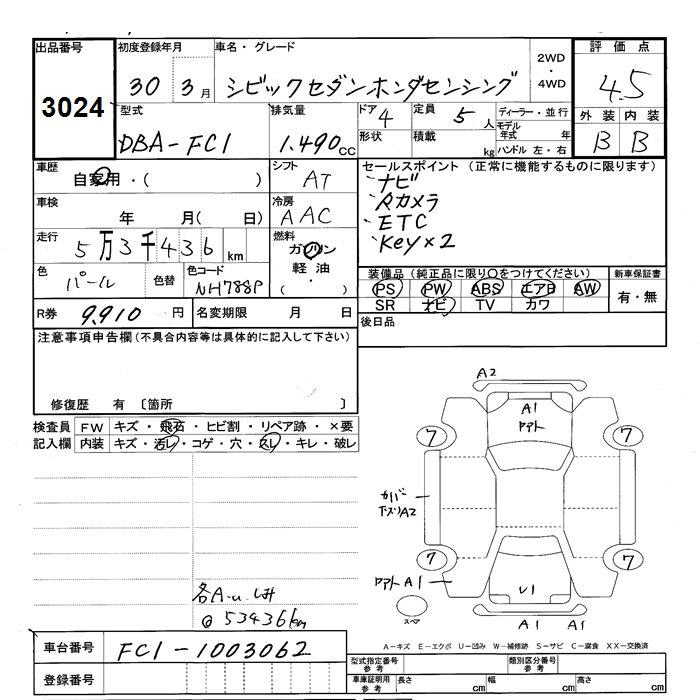 出品番号
3024
初度登録年月
30 3月
車名・グレード
シビックセダンホンダセンシング
2WD
・
4WD
評価点
4.5
外装 内装
B B
型式
DBA-FC1
排気量
1.490cc
ドア
4
形状
定員
5人
積載
kg
ディーラー・並行
モデル年式 年
ハンドル 左・右
車歴
自家用・( )
車検
年 月( 日)
走行
5万3千436km
色
パール
色替
色コード
NH788P
シフト
AT
冷房
AAC
燃料
ガソリン
軽油
( ・ )
セールスポイント(正常に機能するものに限ります)
ナビ
Aカメラ
ETC
Key×2
装備品(純正品に限り○をつけてください)
PS PW ABS エアB AW
SR ナビ TV カワ
新車保証書
有・無
後日品
R券
9.910円
名変期限 月 日
注意事項申告欄(不具合内容等は具体的に記入して下さい)
修復歴 有 〔箇所 〕
検査員記入欄
FW キズ・飛石・ヒビ割・リペア跡・×要
内装 キズ・汚レ・コゲ・穴・スレ・キレ・破レ
各A-u
@53436km
A2
A1
アアト
7
7
カバー
A2
7
7
アアト A1
U1
スペア
A1 A1
A-キズ E-エクボ U-凹み W-補修跡 S-サビ C-腐食 XX-交換済
車台番号
FC1-1003062
登録番号
型式指定番号
参考
類別区分番号
参考
車庫証明用
参考
長さ cm
幅 cm
高さ cm